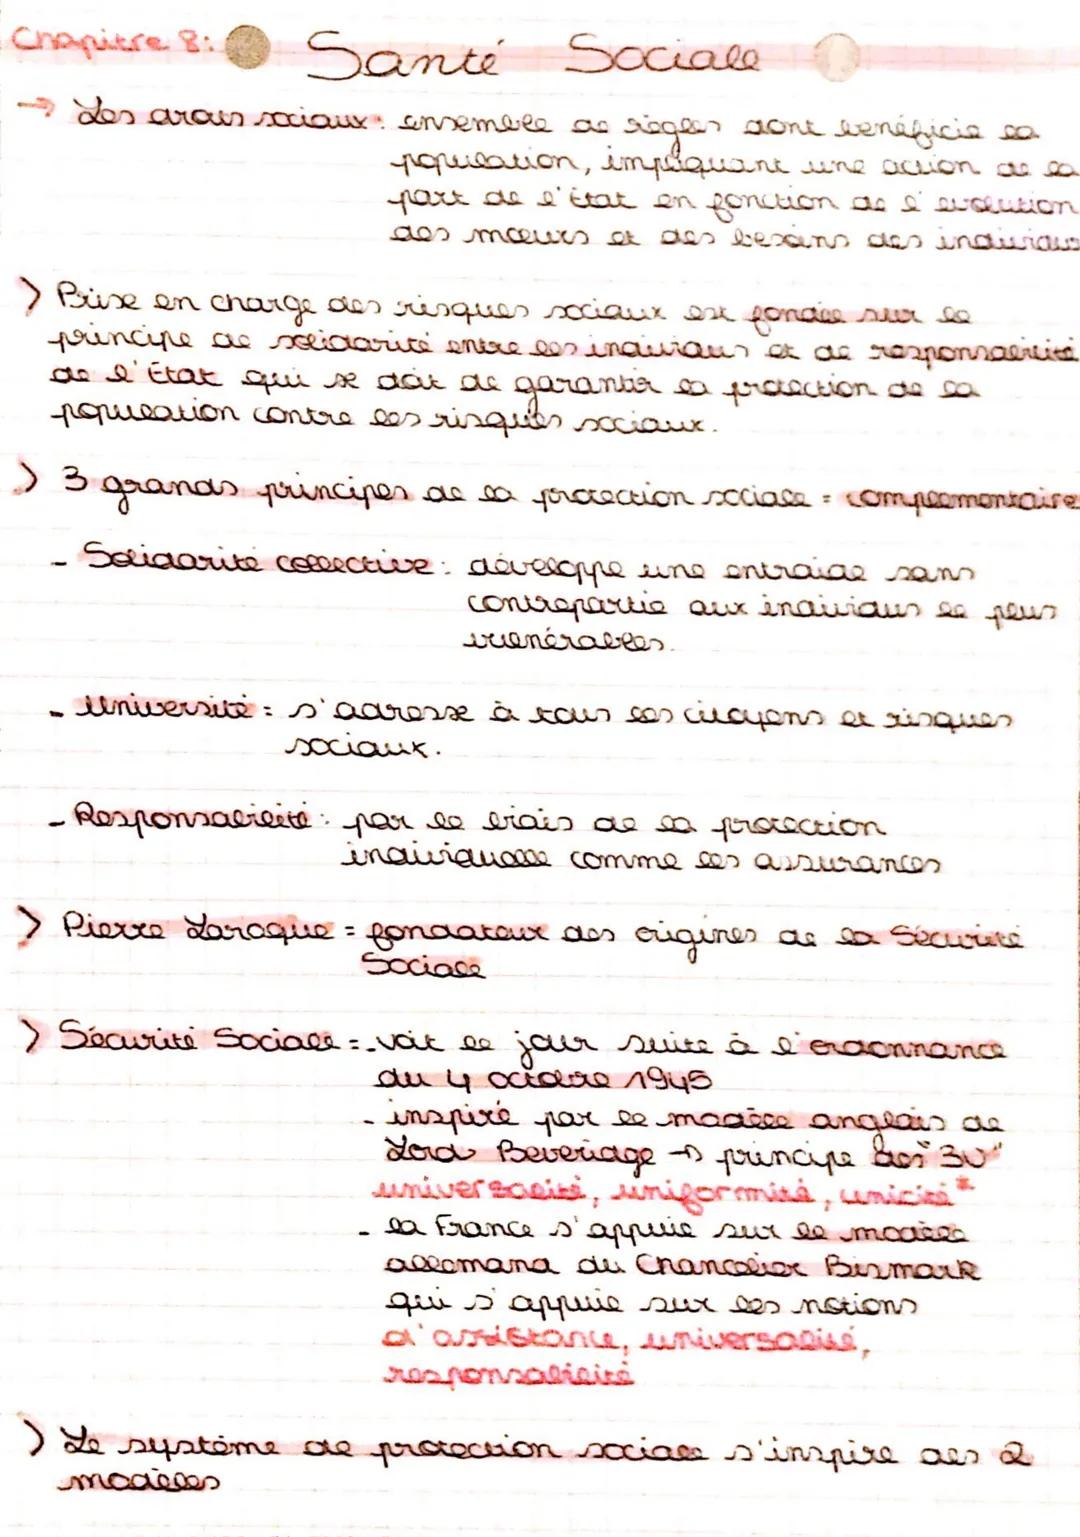 Chapitre 8: Santé Sociale
→ Les droits sociaux: ensemble de règles dont bénéficie la
population, impliquant une action de la
part de l'État en fonction de l'évolution
des mœurs et des besoins des individus
> Prise en charge des risques sociaux est fondée sur le
principe de solidarité entre les individus et de responsabilité
de l'État qui se doit de garantir la protection de la
population contre les risques sociaux.
> 3 grands principes de la protection sociale = complémentaire
- Solidarité collective: développe une entraide sans
contrepartie aux individus le plus
vulnérables.
- Université = s'adresse à tous les citoyens et risques
sociaux.
- Responsabilité: par le biais de la protection
individuelle comme les assurances
> Pierre Laroque = fondateur des origines de la Sécurité
Sociale
> Sécurité Sociale = - voit le jour suite à l'ordonnance
du 4 octobre 1945
- inspiré par le modèle anglais de
Lord Beveridge → principe des "3U"
universalité, uniformité, unicité*
- la France s'appuie sur le modèle
allemand du Chancelier Bismark
qui s'appuie sur les notions
d'assistance, universalité,
responsabilité
> Le système de protection sociale s'inspire des 2
modèles